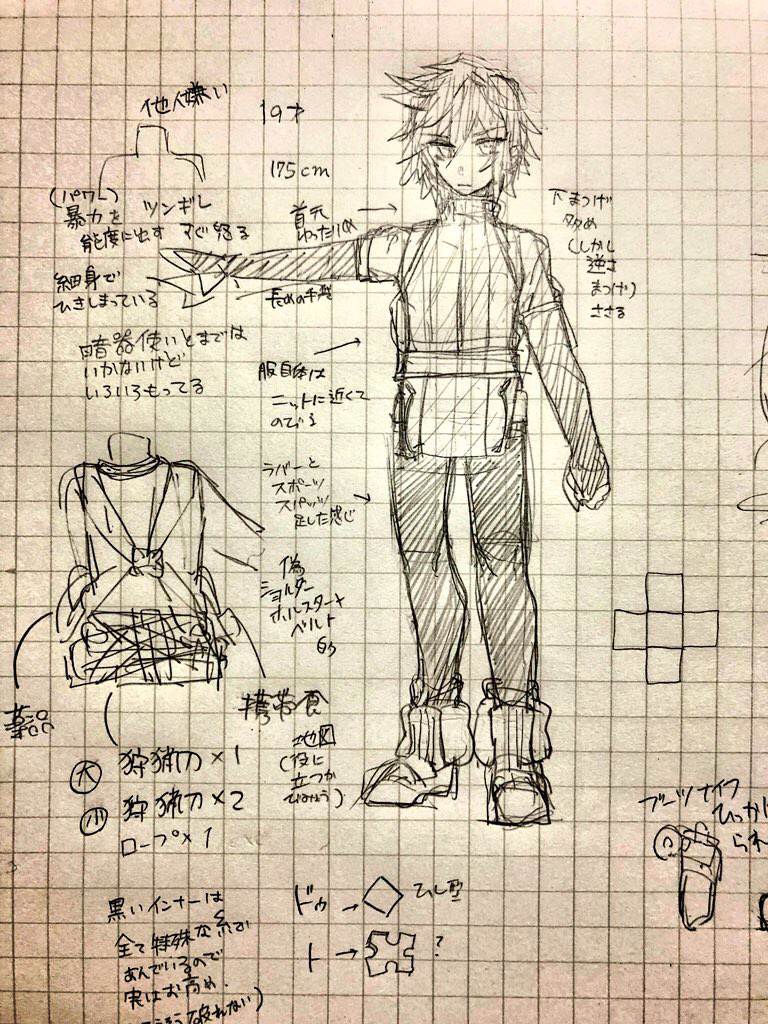 他人嫌い
19才
175cm
(パワー)
暴力を
態度に出す
ツンギレ
すぐ怒る
首元
ゆったりめ
下まつげ
多め
(しかし
逆さ
まつげ)
ささる
細身で
ひきしまっている
長めの手袋
暗器使いとまでは
いかないけど
いろいろもってる
服自体は
ニットに近くて
のびる
ラバーと
スポーツ
スパッツ
足した感じ
偽
ショルダー
ホルスター+
ベルト
的
薬品
携帯食
地図
(役に
立つか
びみょう)
大 狩猟刀×1
小 狩猟刀×2
ロープ×1
ブーツナイフ
ひっか
られ
ドゥ→
ひし型
ト→
?
黒いインナーは
全て特殊な糸で
あんでいるので
実はお高め.
破れない)